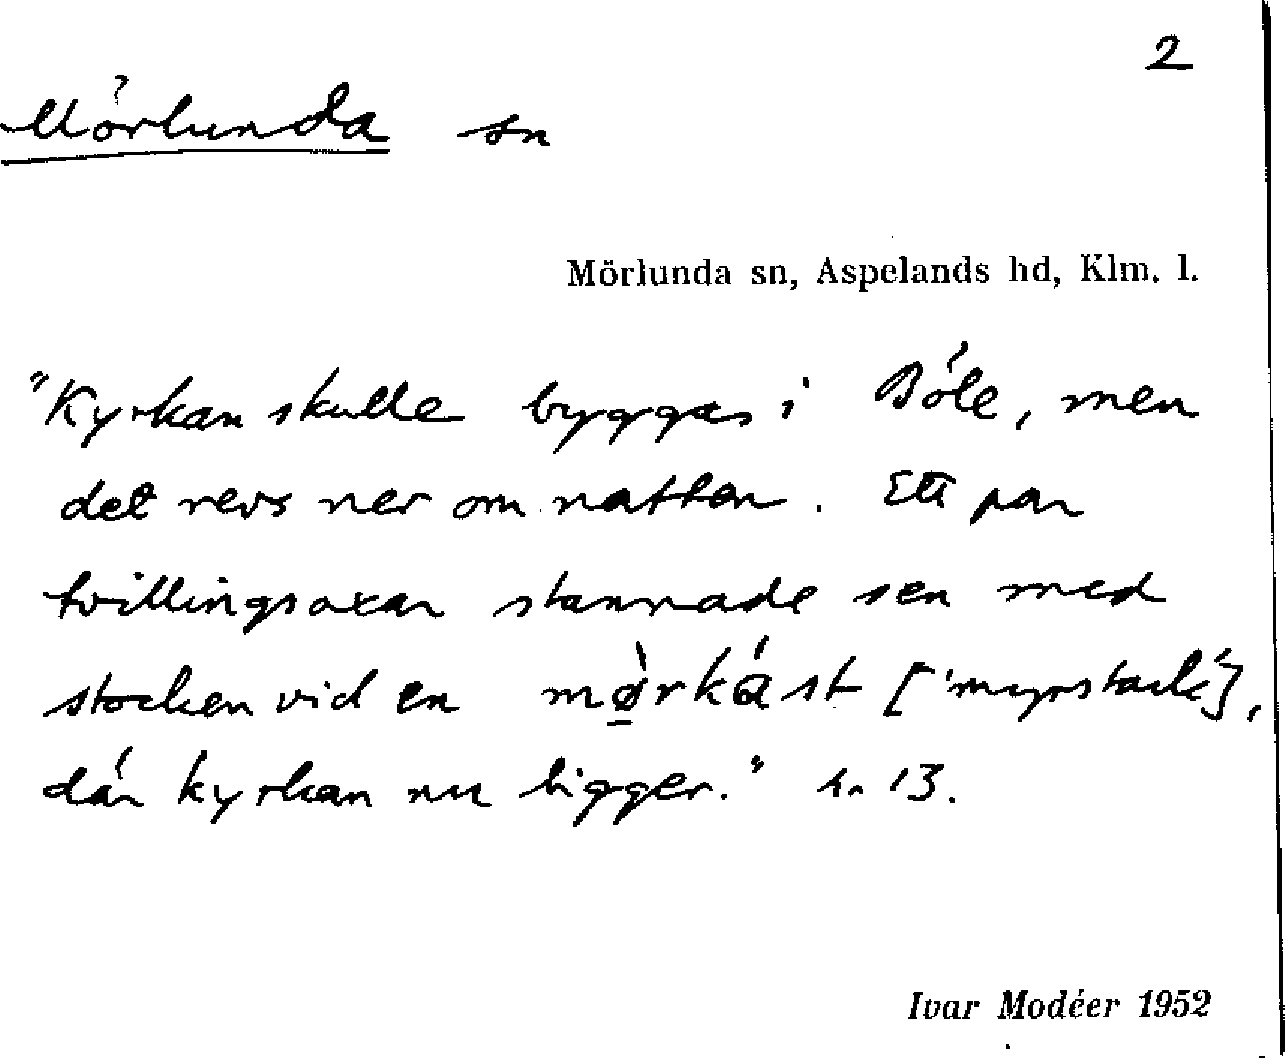 2
Mörlunda sn
Mörlunda sn, Aspelands hd, Klm. l.
"Kyrkan skulle byggas i Böle, men
det revs ner om natten. Ett par
tvillingsoxar stannade sen med
stocken vid en mø̱̀rkást ['myrstack'],
där kyrkan nu ligger." h. 13.
Ivar Modéer 1952